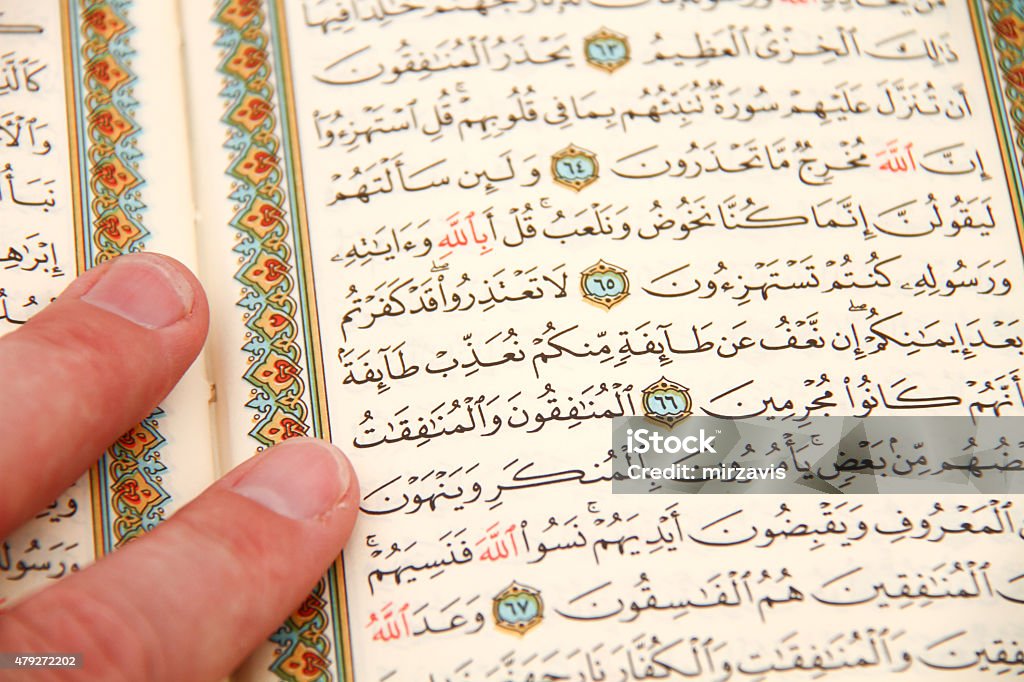 ذَٰلِكَ ٱلْخِزْىُ ٱلْعَظِيمُ ٦٣ يَحْذَرُ ٱلْمُنَٰفِقُونَ
أَن تُنَزَّلَ عَلَيْهِمْ سُورَةٌ تُنَبِّئُهُم بِمَا فِى قُلُوبِهِمْ ۚ قُلِ ٱسْتَهْزِءُوٓا۟
إِنَّ ٱللَّهَ مُخْرِجٌ مَّا تَحْذَرُونَ ٦٤ وَلَئِن سَأَلْتَهُمْ
لَيَقُولُنَّ إِنَّمَا كُنَّا نَخُوضُ وَنَلْعَبُ ۚ قُلْ أَبِٱللَّهِ وَءَايَٰتِهِۦ
وَرَسُولِهِۦ كُنتُمْ تَسْتَهْزِءُونَ ٦٥ لَا تَعْتَذِرُوا۟ قَدْ كَفَرْتُم
بَعْدَ إِيمَٰنِكُمْ ۚ إِن نَّعْفُ عَن طَآئِفَةٍ مِّنكُمْ نُعَذِّبْ طَآئِفَةًۢ
بِأَنَّهُمْ كَانُوا۟ مُجْرِمِينَ ٦٦ ٱلْمُنَٰفِقُونَ وَٱلْمُنَٰفِقَٰتُ
مِّنۢ بَعْضٍ ۚ بِٱلْمُنكَرِ وَيَنْهَوْنَ
ٱلْمَعْرُوفِ وَيَقْبِضُونَ أَيْدِيَهُمْ ۚ نَسُوا۟ ٱللَّهَ فَنَسِيَهُمْ ۗ
ٱلْمُنَٰفِقِينَ هُمُ ٱلْفَٰسِقُونَ ٦٧ وَعَدَ ٱللَّهُ
وَٱلْمُنَٰفِقَٰتِ وَٱلْكُفَّارَ نَارَ جَهَنَّمَ
iStock™
Credit: mirzavis
479272202